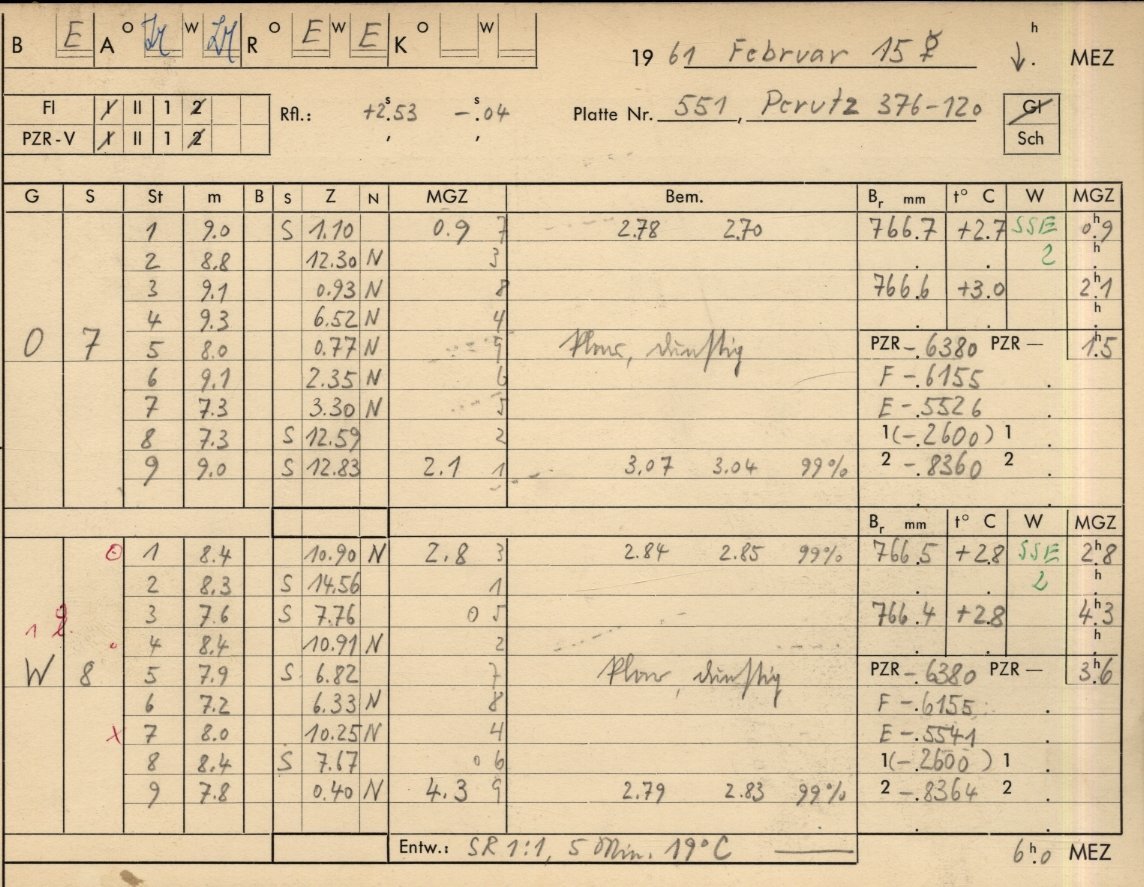 B E A O W R O E W E K O W
19 61 Februar 15 ☿ h MEZ
FI I II 1 2
PZR-V I II 1 2
Rfl.: +2ˢ.53 -ˢ.04
Platte Nr. 551, Perutz 376-120
Gl
Sch
G S St m B S Z N MGZ Bem. Bᵣ mm t° C W MGZ
1 9.0 S 1.10 0.9 7 2.78 2.70 766.7 +2.7 SSE 0ʰ.9
2 8.8 12.30 N 3 2 h
3 9.1 0.93 N 8 766.6 +3.0 2ʰ.1
4 9.3 6.52 N 4 h
O 7 5 8.0 0.77 N 9 klar, dunstig PZR -.6380 PZR - 1.5
6 9.1 2.35 N 6 F -.6155
7 7.3 3.30 N 5 E -.5526
8 7.3 S 12.59 2 1 (-.2600) 1
9 9.0 S 12.83 2.1 1 3.07 3.04 99% 2 -.8360 2
Bᵣ mm t° C W MGZ
1 8.4 10.90 N 2.8 3 2.84 2.85 99% 766.5 +2.8 SSE 2ʰ.8
2 8.3 S 14.56 1 2 h
3 7.6 S 7.76 0 5 766.4 +2.8 4ʰ.3
4 8.4 10.91 N 2 h
W 8 5 7.9 S 6.82 7 klar, dunstig PZR -.6380 PZR - 3ʰ.6
6 7.2 6.33 N 8 F -.6155
x 7 8.0 10.25 N 4 E -.5541
8 8.4 S 7.67 0 6 1 (-.2600) 1
9 7.8 0.40 N 4.3 9 2.79 2.83 99% 2 -.8364 2
Entw.: SR 1:1, 5 Min. 19°C 6ʰ.0 MEZ